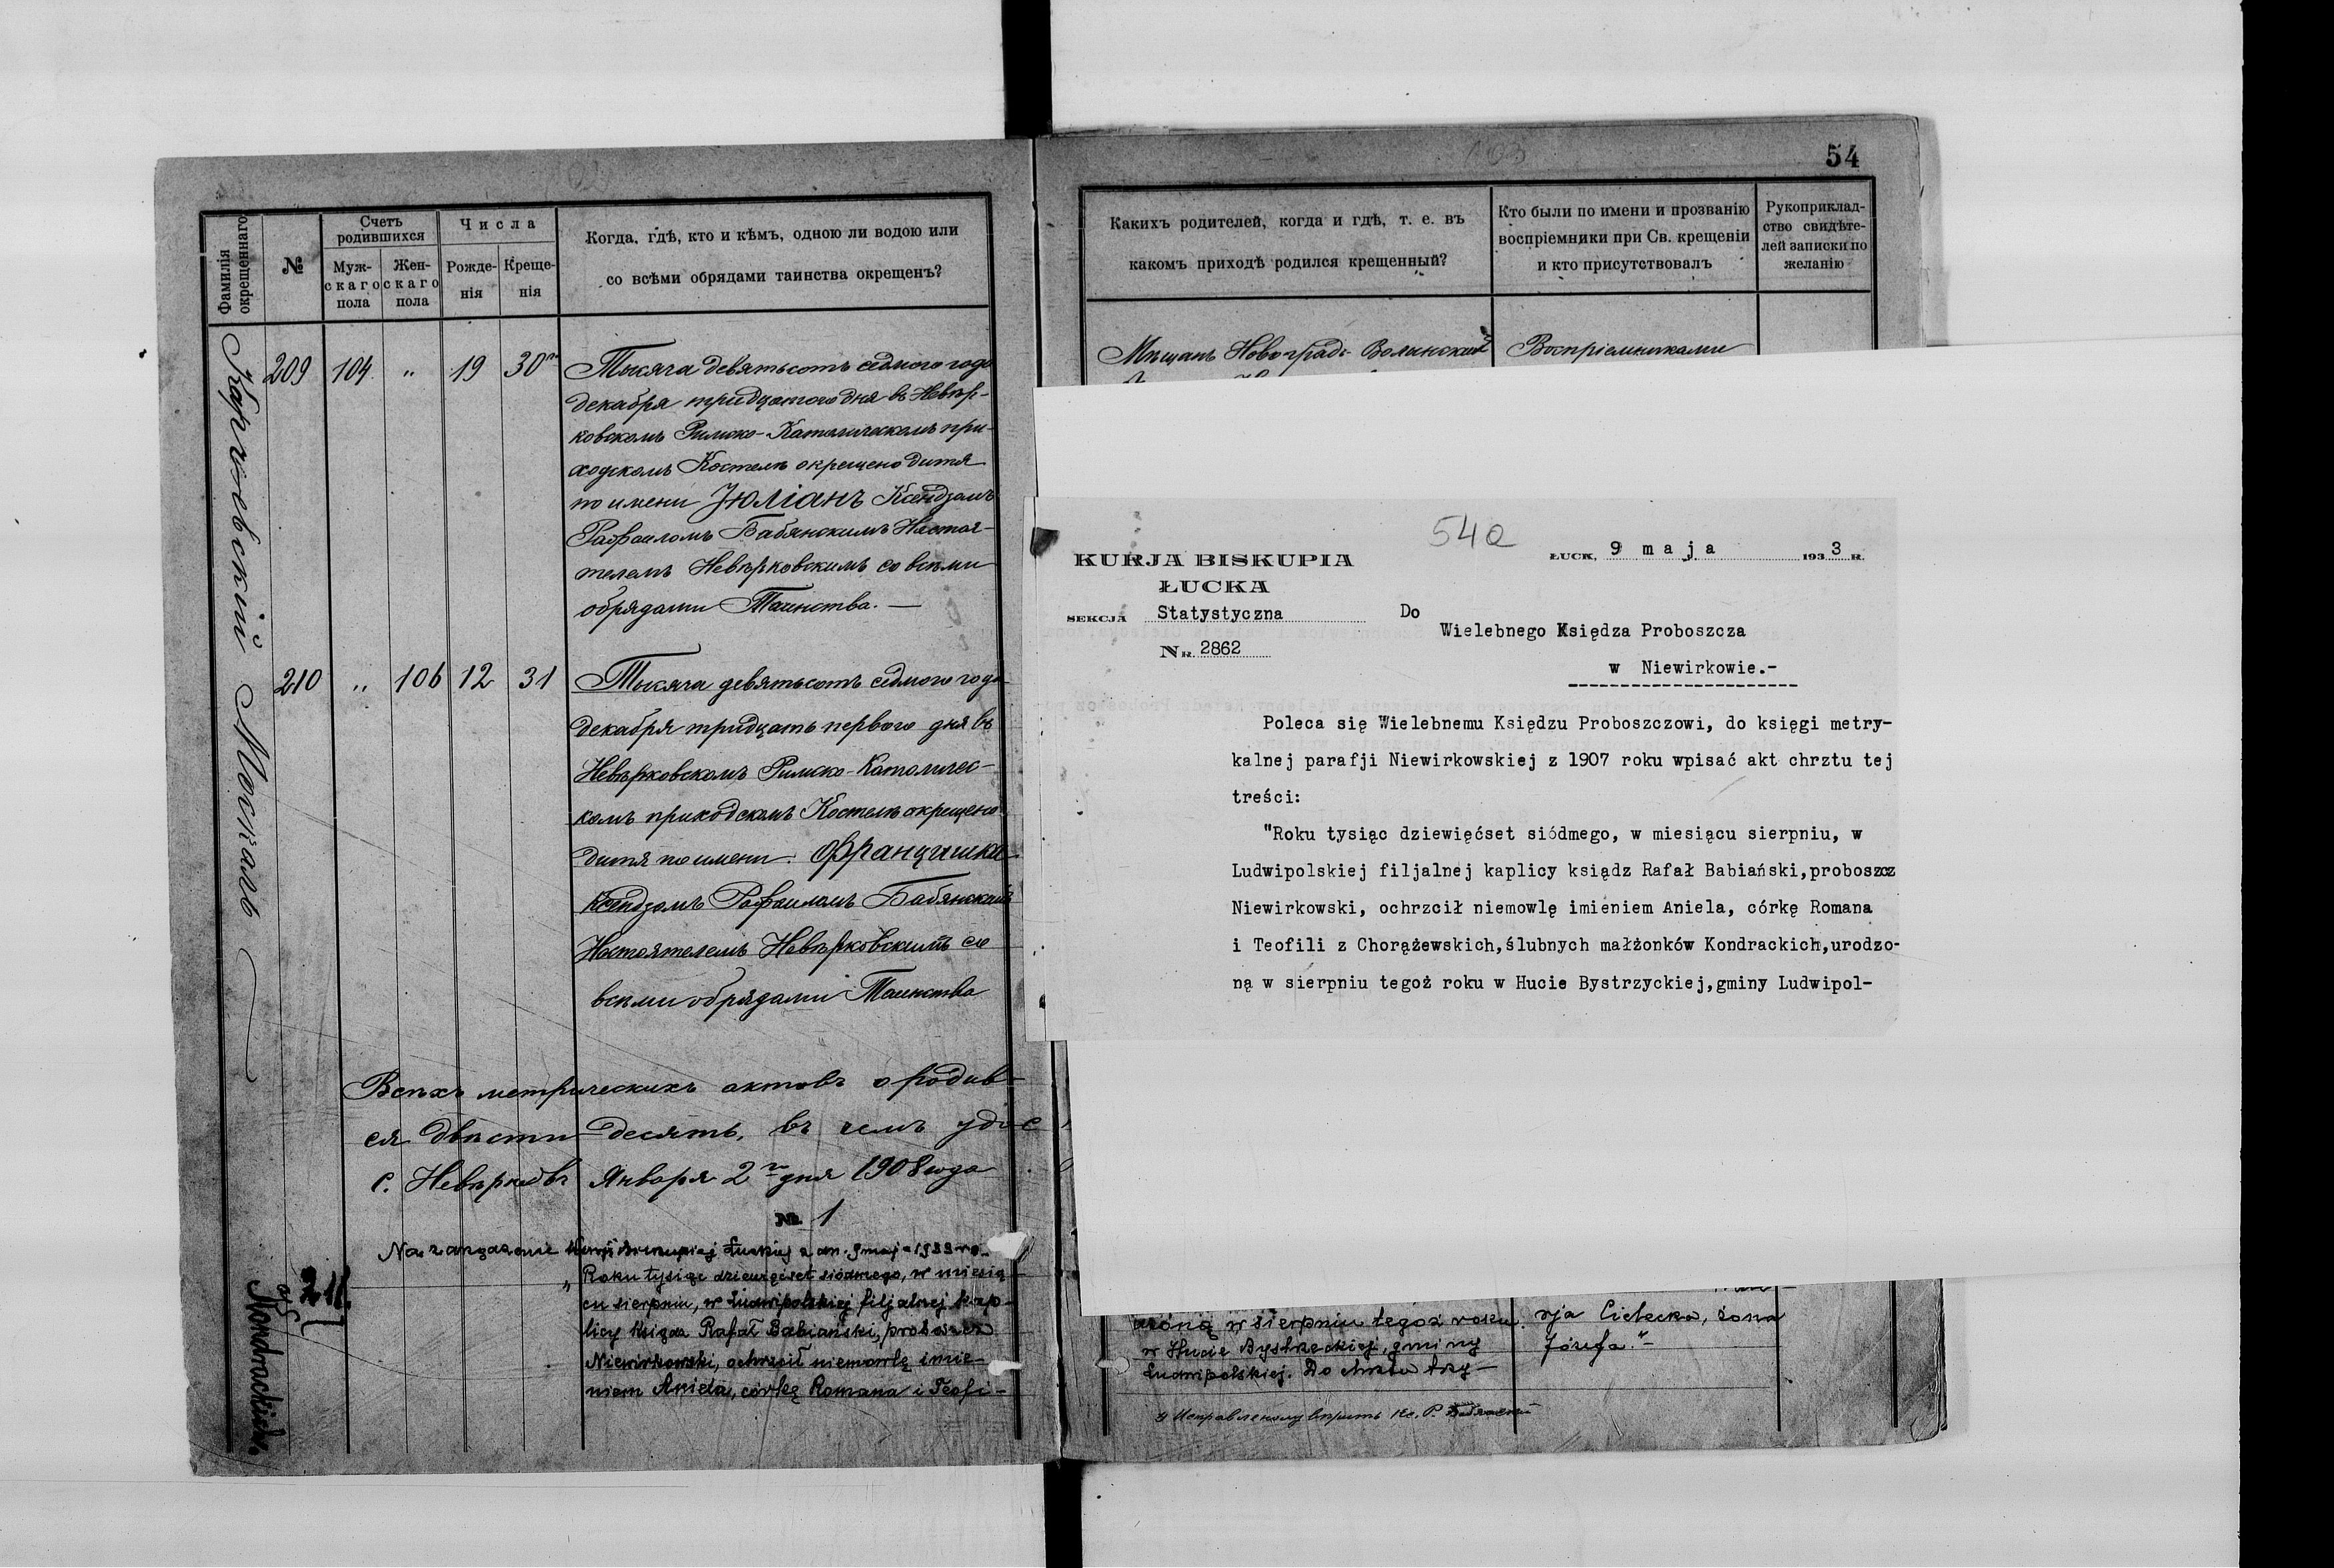 54
Фамилія окрещеннаго
№
Счетъ родившихся
Муж-скаго пола
Жен-скаго пола
Числа
Рожде-нія
Креще-нія
Когда, гдѣ, кто и кѣмъ, одною ли водою или
со всѣми обрядами таинства окрещенъ?
209 104 „ 19 30
Тысяча девятьсотъ седмого года
декабря тридцатого дня въ Невѣр-
ковскомъ Римско-Католическомъ при-
ходскомъ Костелѣ окрещено дитя
по имени Юліанъ Ксендзомъ
Рафаиломъ Бабянскимъ Настоя-
телемъ Невѣрковскимъ со всѣми
обрядами Таинства. —
Москаль
210 „ 106 12 31
Тысяча девятьсотъ седмого года
декабря тридцать первого дня въ
Невѣрковскомъ Римско-Католичес-
комъ приходскомъ Костелѣ окрещено
дитя по имени Францишка
Ксендзомъ Рафаиломъ Бабянскимъ
Настоятелемъ Невѣрковскимъ со
всѣми обрядами Таинства
Всѣхъ метрическихъ актовъ о родив-
ся двѣсти десять, въ чемъ удос
с. Невѣрковъ Января 2 дня 1908 года
№ 1
Na zarządzenie Kurji Biskupiej Łuckiej z dn. 9 maja 1933 ro.
211.
Kondracki
„Roku tysiąc dziewięćset siódmego, w miesią
cu sierpniu, w Ludwipolskiej filjalnej kap-
licy ksiądz Rafał Babiański, proboszcz
Niewirkowski, ochrzcił niemowlę imie-
niem Aniela, córkę Romana i Teofi-
Каких​ъ родителей, когда и гдѣ, т. е. въ
какомъ приходѣ родился крещенный?
Кто были по имени и прозванію
воспріемники при Св. крещеніи
и кто присутствовалъ
Рукоприклад-
ство свидѣте-
лей записки по
желанію
Мѣщанъ Новоградъ-Волинский
Воспріемниками
54a
KURJA BISKUPIA
ŁUCKA
SEKCJA Statystyczna
NR. 2862
ŁUCK, 9 maja 1933 R.
Do
Wielebnego Księdza Proboszcza
w Niewirkowie.-
Poleca się Wielebnemu Księdzu Proboszczowi, do księgi metry-
kalnej parafji Niewirkowskiej z 1907 roku wpisać akt chrztu tej
treści:
"Roku tysiąc dziewięćset siódmego, w miesiącu sierpniu, w
Ludwipolskiej filjalnej kaplicy ksiądz Rafał Babiański,proboszcz
Niewirkowski, ochrzcił niemowlę imieniem Aniela, córkę Romana
i Teofili z Chorążewskich,ślubnych małżonków Kondrackich,urodzo-
ną w sierpniu tegoż roku w Hucie Bystrzyckiej,gminy Ludwipol-
w sierpniu tegoż roku
w Hucie Bystrzyckiej, gminy
Ludwipolskiej. Do chrztu trzy-
rja Cielecka, żona
Józefa."-